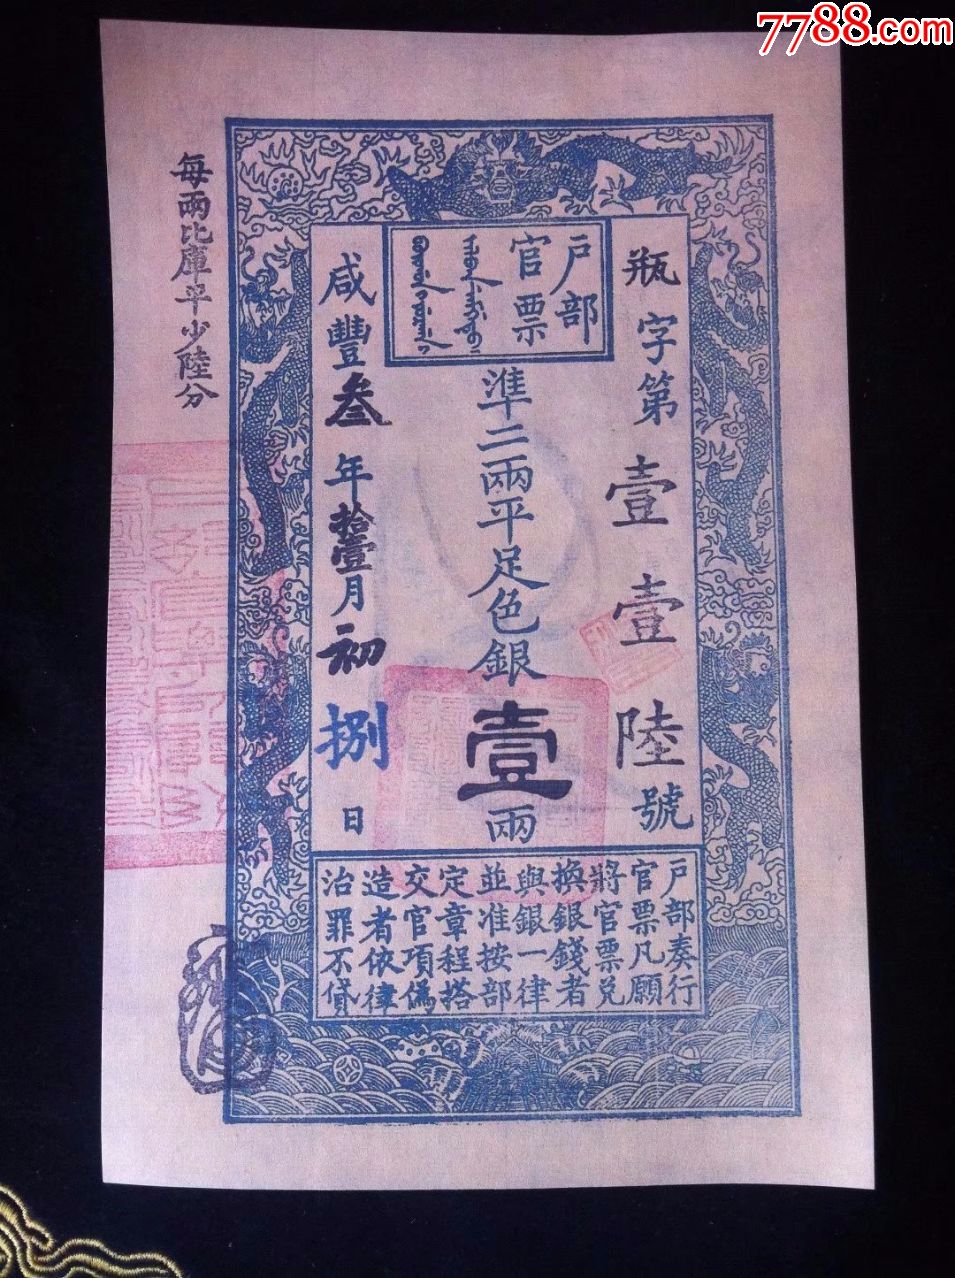 7788.com
戶部
官票
瓶字第壹壹陸號
準二兩平足色銀壹兩
咸豐叁年拾壹月初捌日
每兩比庫平少陸分
戶部奏行
官票凡願
將官票兌
換銀錢者
與銀一律
並准按部
定章程搭
交官項偽
造者依律
治罪不貸